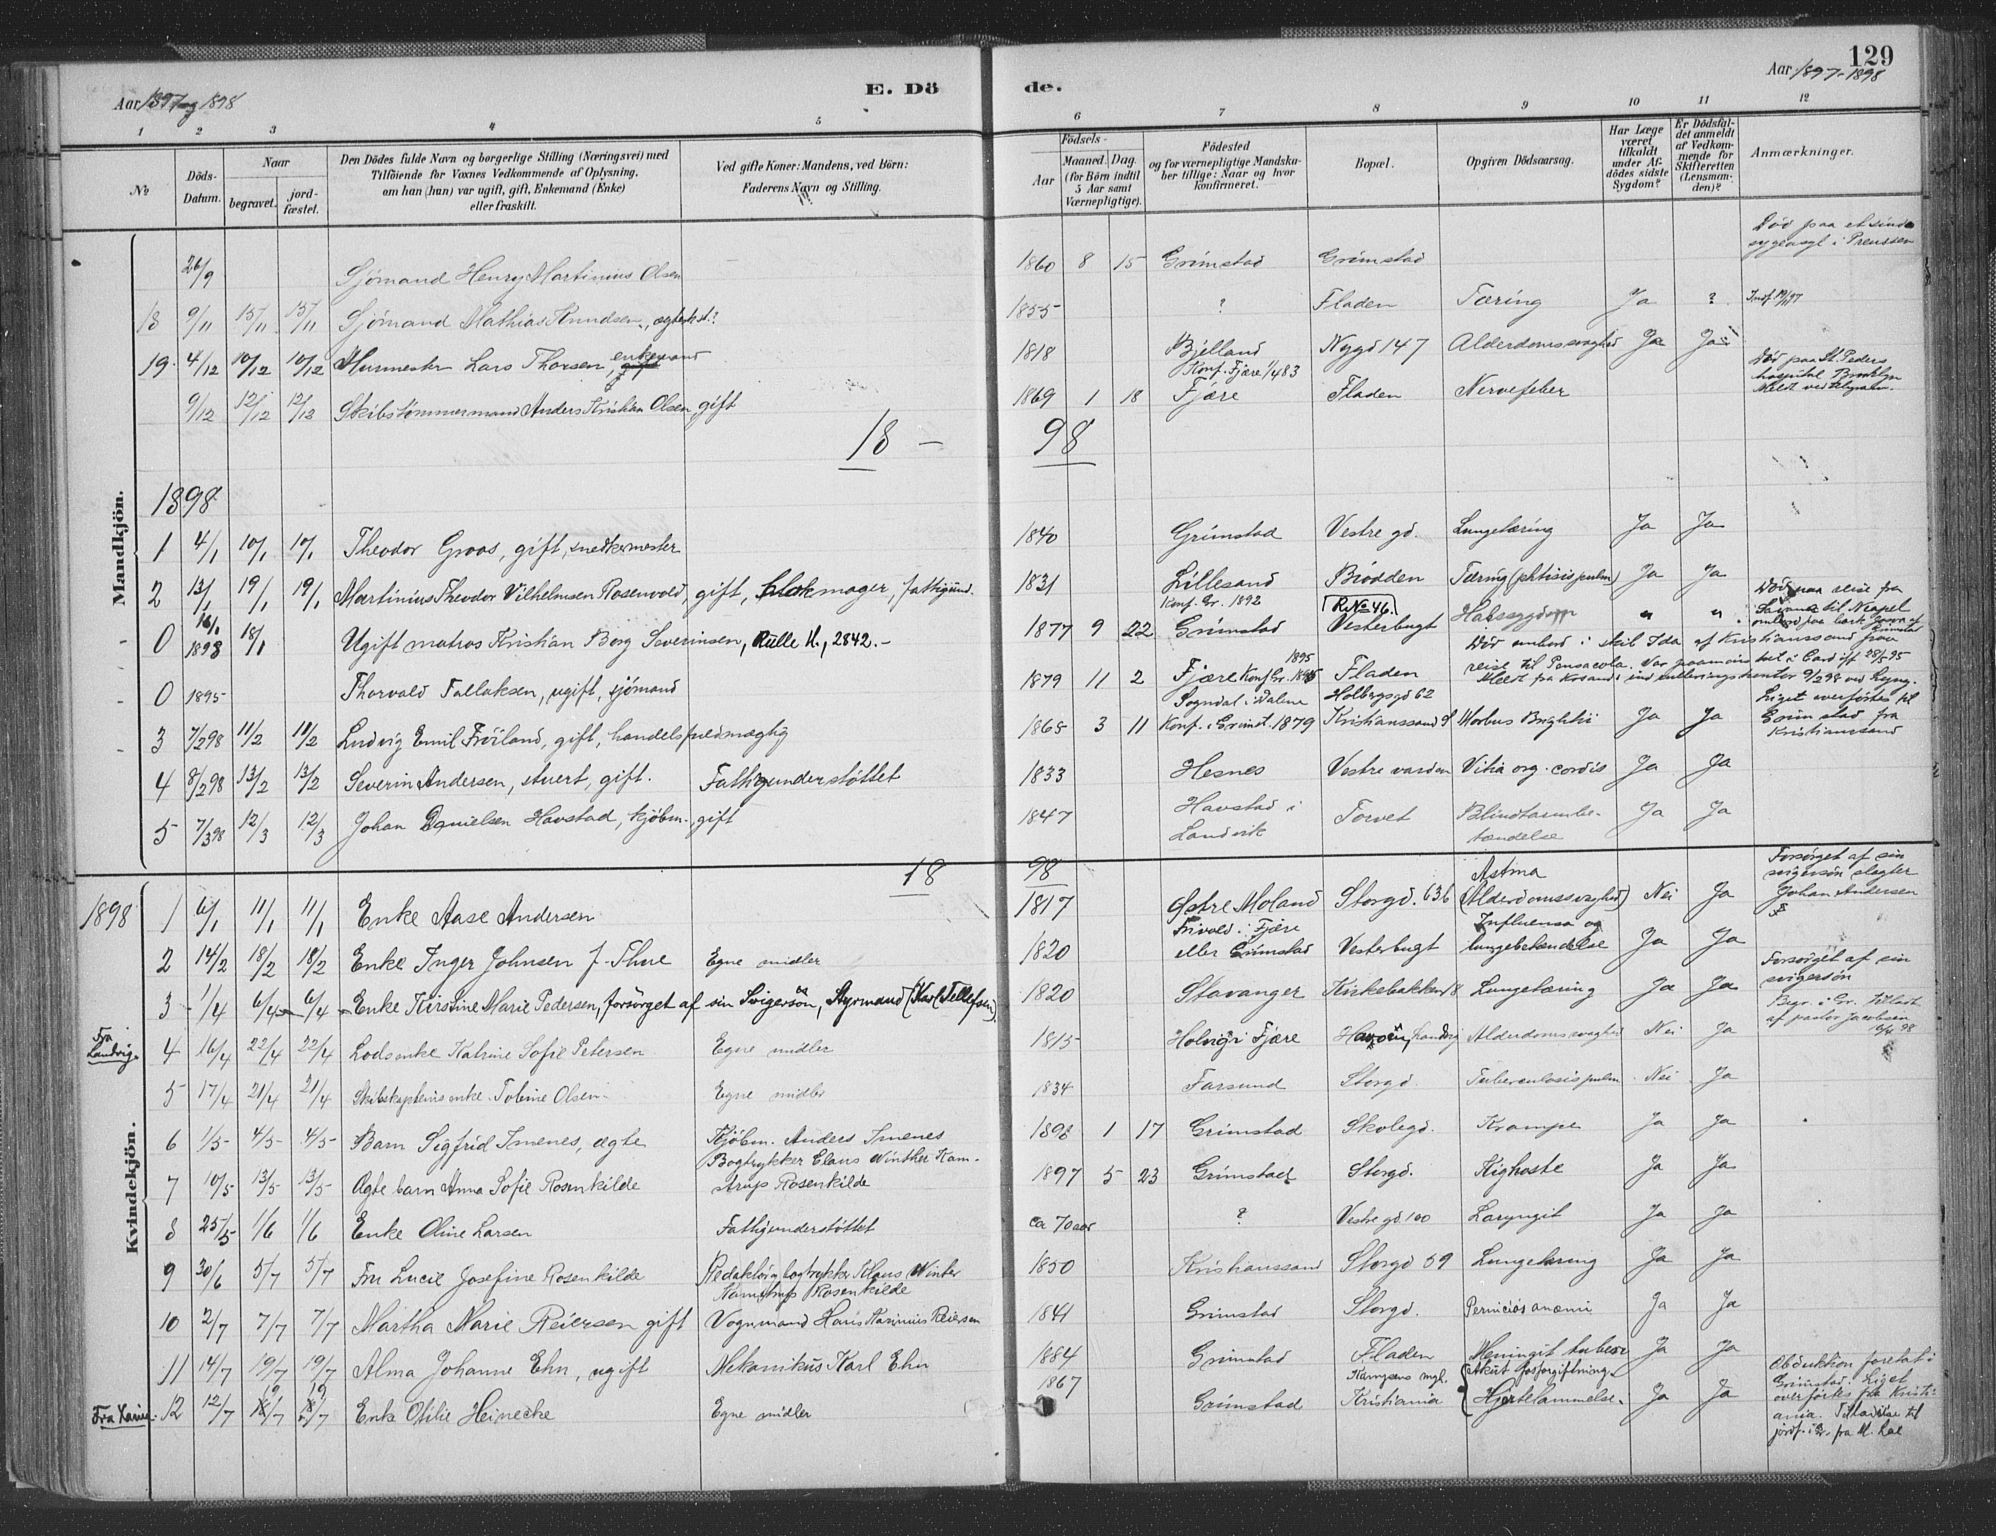 129
Aar 1897 og 1898
E. Dö
de.
Aar 1897-1898
1 2 3 4 5 6 7 8 9 10 11 12
№
Döds-
Datum.
Naar
begravet.
jord-
fæstet.
Den Dödes fulde Navn og borgerlige Stilling (Næringsvei) med
Tilföiende for Voxnes Vedkommende af Oplysning,
om han (hun) var ugift, gift, Enkemand (Enke)
eller fraskilt.
Ved gifte Koner: Mandens, ved Börn:
Faderens Navn og Stilling.
Födsels-
Aar
Maaned. Dag.
(for Börn indtil
5 Aar samt
Værnepligtige).
Födested
og for værnepligtige Mandska-
ber tillige: Naar og hvor
konfirmeret.
Bopæl.
Opgiven Dödsaarsag.
Har Læge
været
tilkaldt
under Af-
dödes sidste
Sygdom?
Er Dödsfal-
det anmeldt
af Vedkom-
mende for
Skifteretten
(Lensman-
den)?
Anmærkninger.
Mandkjön.
26/9 Sjömand Henry Martinius Olsen 1860 8 15 Grimstad Grimstad Död paa et sinds
sygeasyl i Preussen
18 9/11 15/11 15/11 Sjömand Mathias Knudsen, ugift? 1855 ? Fladen Tæring Ja ?
19 4/12 10/12 10/12 Murmester Lars Thorsen, enkemand 1818 Bjelland Nygd 147 Alderdomssvaghed Ja Ja
9/12 12/12 12/12 Skibstömmermand Anders Kristian Olsen gift 1869 1 18 Konf. Fjære 1/4 83
Fjære Fladen Nervefeber Död paa St. Peders
hospital Brooklyn
Meldt ved telegram.
18 - 98
1898
1 4/1 10/1 10/1 Theodor Groos, gift, snedkermester 1840 Grimstad Vestre gd. Lungetæring Ja Ja
2 13/1 19/1 19/1 Martinius Theodor Vilhelmsen Rosenvold, gift, blokmager, fattigund. 1831 Lillesand Biodden Tæring (phtisis pulm) Ja Ja
0 16/1 1898 18/1 Ugift matros Kristian Borg Severinsen, Rulle N., 2842.- 1877 9 22 Konf. Gr. 1892
Grimstad R.No 46.
Vesterbugt Halssygdom " " Död paa reise fra
Savanna til Neapel
ombord paa bark
0 1895 Thorvald Tallaksen, ugift, sjömand 1879 11 2 Fjære Konf. Gr. 1895 Fladen Död ombord i skib Ida af Kristianssand paa
reise til Pensacola. Var paamönstret i Cardiff 28/5 95
3 7/2 98 11/2 11/2 Ludvig Emil Fröiland, gift, handelsfuldmægtig 1865 3 11 Sogndal i Dalene
Konf. i Grimst. 1879 Holbergsgd 62
Kristianssand S Morbus Brightii Ja Ja Liget overförtes til
Grimstad fra
Kristianssand
4 8/2 98 13/2 13/2 Severin Andersen, stuert, gift. Fattigunderstöttet 1833 Hesnes Vestre varden Vitia org. cordis Ja Ja
5 7/3 98 12/3 12/3 Johan Danielsen Havstad, kjöbm. gift 1847 Havstad i
Landvik Torvet Blindtarmbe-
tændelse Ja Ja
18 98
Kvindekjön.
1898 1 6/1 11/1 11/1 Enke Aase Andersen 1817 Østre Moland Storgd. 636 Astma
(Alderdomssvaghed) Nei Ja Forsörget af sin
svigersön slagter
Johan Andersen
2 14/2 18/2 18/2 Enke Inger Johnsen f. Thue Egne midler 1820 Frivold i Fjære
eller Grimstad Vesterbugt Influensa og
lungebetændelse Ja Ja
3 1/4 6/4 6/4 Enke Kirstine Marie Pedersen, forsörget af sin Svigersön, Styrmand (Karl Tellefsen). 1820 Stavanger Kirkebakken 8 Lungetæring Ja Ja Forsörget af sin
svigersön
Fra
Landvig 4 16/4 22/4 22/4 Lodsenke Katrine Sofie Petersen Egne midler 1815 Holvig i Fjære Havöen, Landvig Alderdomssvaghed Nei Ja Begr. i Gr. tilladt
af pastor Jacobsen
16/4 98
5 17/4 21/4 21/4 Skibskapteins enke Tobine Olsen Egne midler 1834 Farsund Storgd. Tuberculosis pulm. Nei Ja
6 1/5 4/5 4/5 Barn Sigfrid Imenes, ægte Kjöbm. Anders Imenes 1898 1 17 Grimstad Skolegd. Krampe Ja Ja
7 10/5 13/5 13/5 Ægte barn Anna Sofie Rosenkilde Bogtrykker Claus Winther Kam-
strup Rosenkilde 1897 5 23 Grimstad Storgd. Kighoste Ja Ja
8 25/5 1/6 1/6 Enke Oline Larsen Fattigunderstöttet ca 70 aar ? Vestre gd 100 Laryngit Ja Ja
9 30/6 5/7 5/7 Fru Lucie Josefine Rosenkilde Redaktör, bogtrykker Klaus Winter
Kamstrup Rosenkilde 1850 Kristianssand Storgd 59 Lungetæring Ja Ja
10 2/7 7/7 7/7 Martha Marie Reiersen gift Vognmand Hans Kasinius Reiersen 1841 Grimstad Storgd. Perniciös anæmi Ja Ja
11 14/7 19/7 19/7 Alma Johanne Ehn, ugift Mekanikus Karl Ehn 1884 Grimstad Fladen Meningit tuberc Ja Ja
12 12/7 19/7 19/7 Enke Otilie Heinecke Egne midler 1867 Grimstad Kristiania Akut fosforgiftning
Hjertelammelse Ja Ja Obduktion foretat i
Grimstad. Liget
overförtes fra Kristi-
ania. Tilladelse til
jordf. i Gr. fra